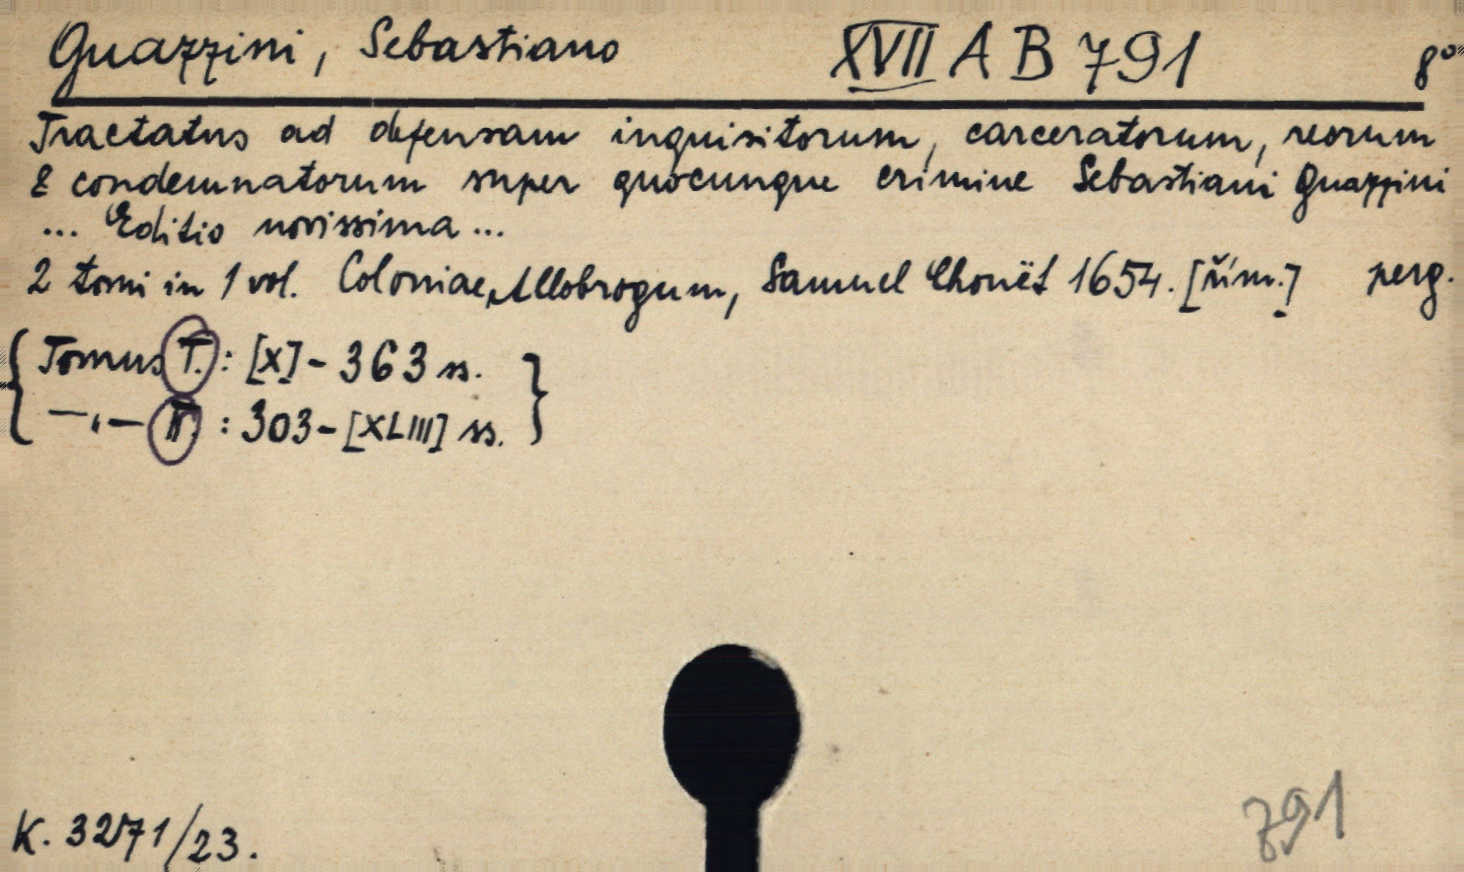 Guazzini, Sebastiano XVII A B 791 8°
Tractatus ad defensam inquisitorum, carceratorum, reorum
& condemnatorum super quocunque crimine Sebastiani Guazzini
... Editio novissima ...
2 tomi in 1 vol. Coloniae Allobrogum, Samuel Chouët 1654. [řím.] perg.
{ Tomus I. : [X] - 363 ss. }
—„— II. : 303 - [XLIII] ss.
K. 3271/23.
791